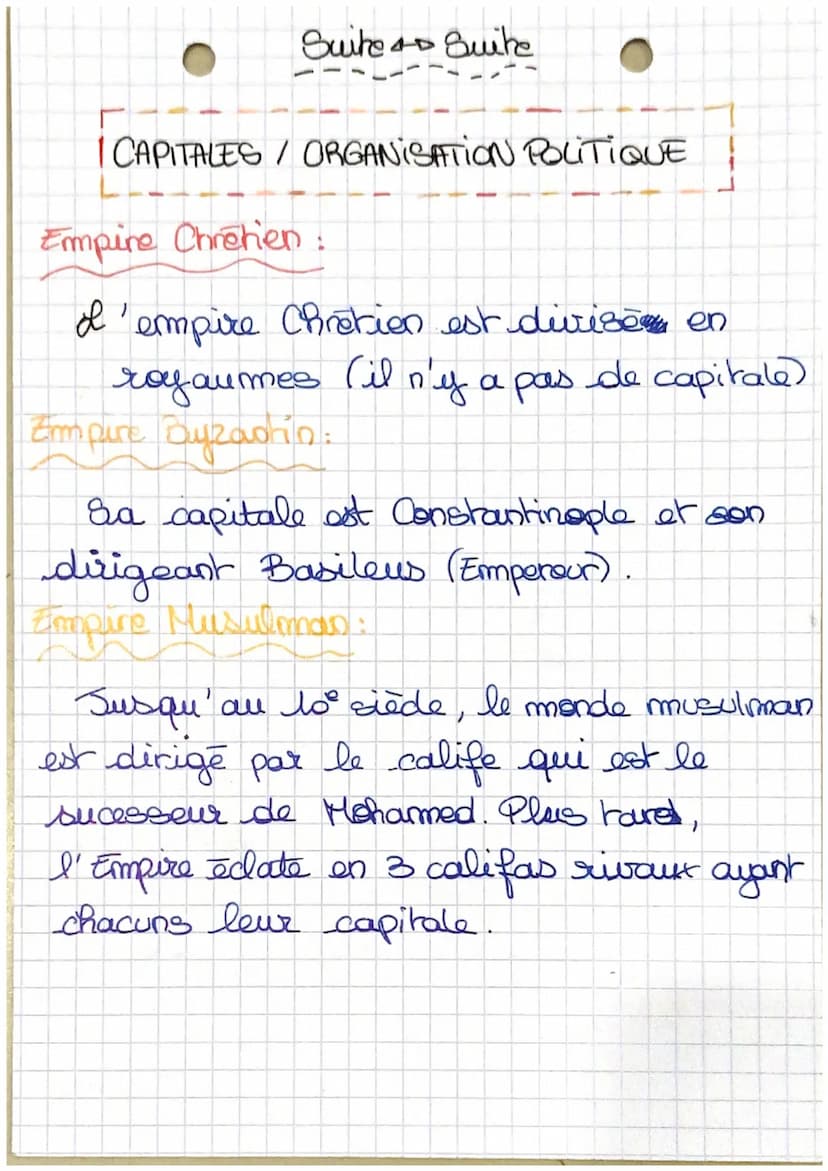 Suite ⇨ Suite
CAPITALES / ORGANISATION POLITIQUE
Empire Chrétien :
L'empire Chrétien est divisé en
royaumes (il n'y a pas de capitale)
Empire Byzantin :
Sa capitale est Constantinople et son
dirigeant Basileus (Empereur).
Empire Musulman :
Jusqu'au 10e siècle, le monde musulman
est dirigé par le calife qui est le
sucesseur de Mohamed. Plus tard,
l'Empire éclate en 3 califas rivaux ayant
chacuns leur capitale.